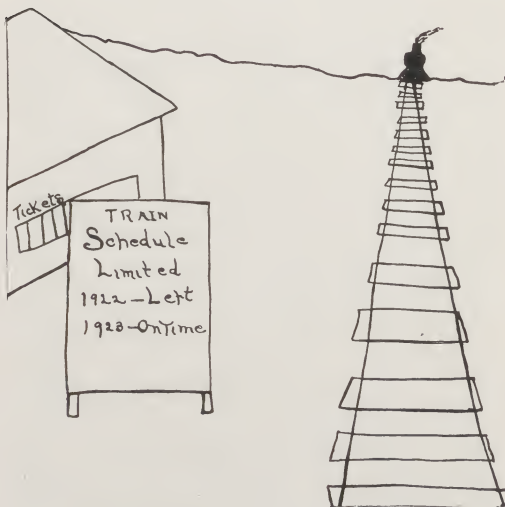 Tickets
TRAIN
Schedule
Limited
1922-Left
1923-OnTime